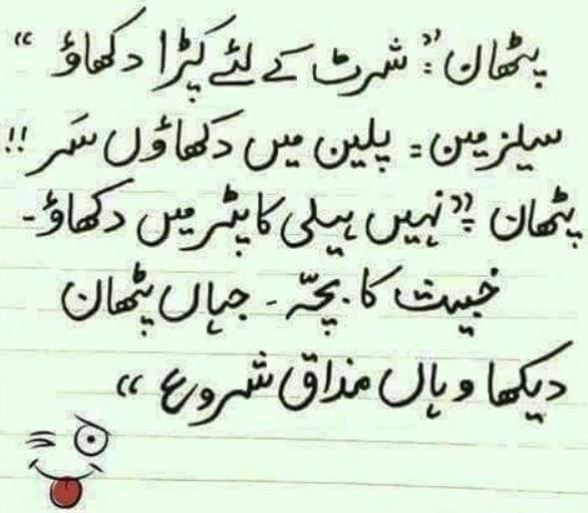 پٹھان : " شرٹ کے لئے کپڑا دکھاؤ "
سیلزمین = پلین میں دکھاؤں سَر !!
پٹھان " نہیں ہیلی کاپٹر میں دکھاؤ -
خبیث کا بچّہ - جہاں پٹھان
دیکھا وہاں مذاق شروع "